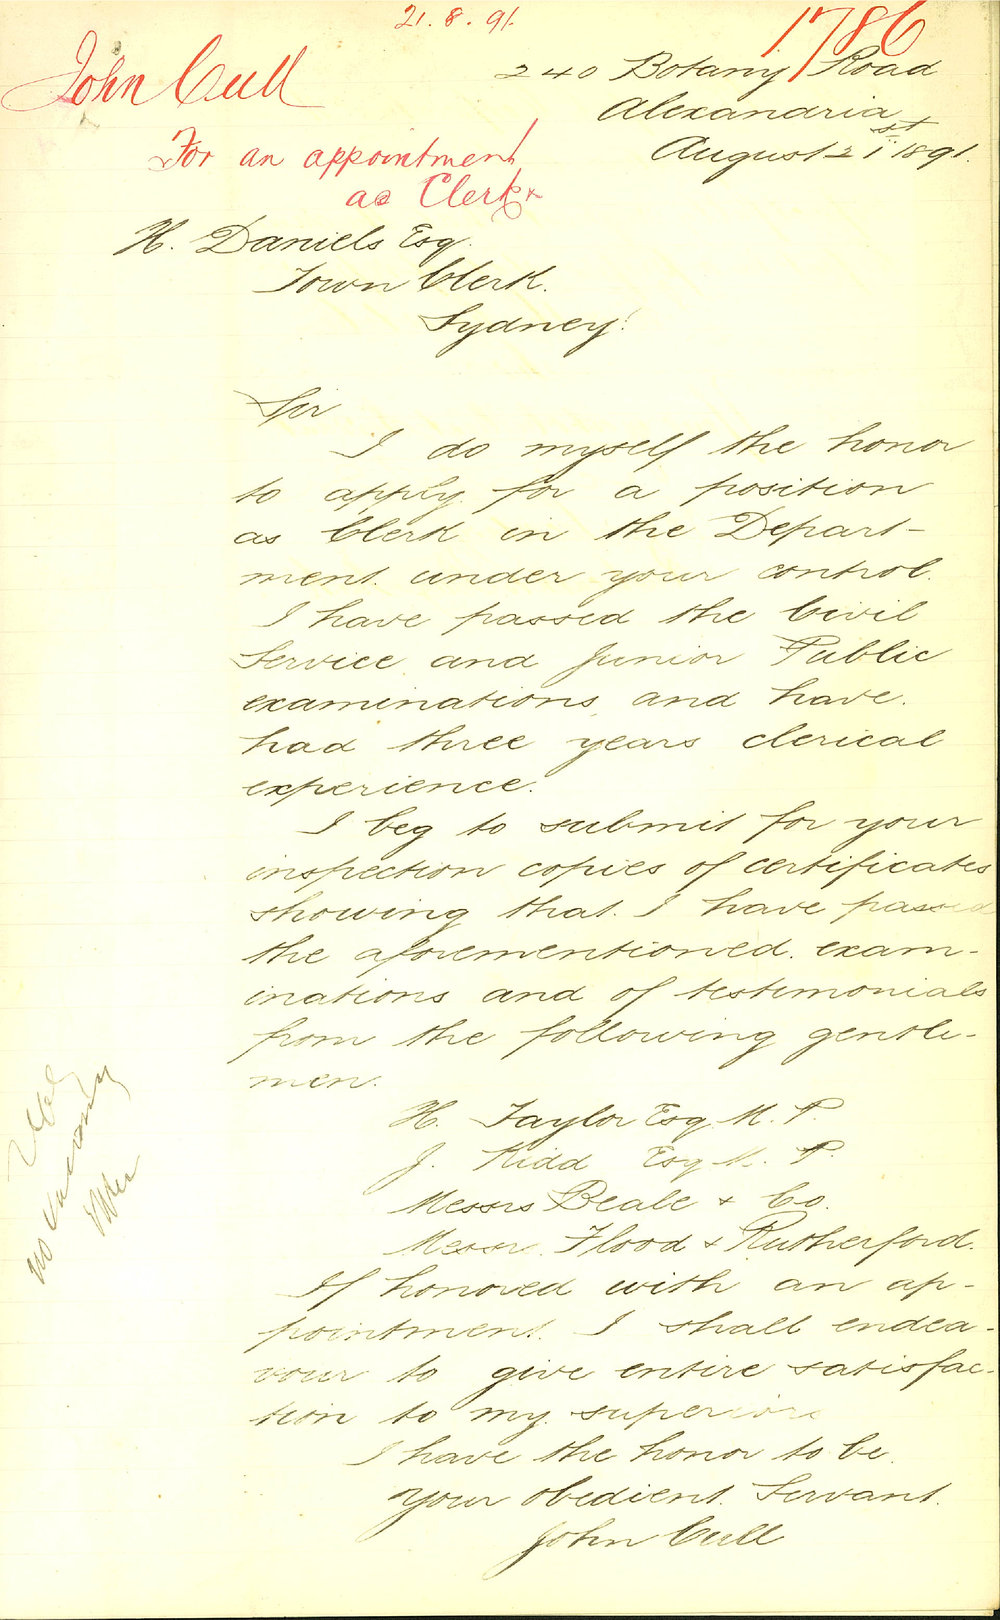 21.8.91.
1786
John Cull
240 Botany Road
Alexandria
August 21st 1891.
For an appointment
as Clerk
H. Daniels Esq.
Town Clerk.
Sydney.
Sir
I do myself the honor
to apply for a position
as Clerk in the Depart-
ment under your control.
I have passed the Civil
Service and Junior Public
examinations and have
had three years clerical
experience.
I beg to submit for your
inspection copies of certificates
showing that I have passed
the aforementioned exam-
inations and of testimonials
from the following gentle-
men.
H. Taylor Esq. M. P.
J. Kidd Esq M. P.
Messrs Beale & Co.
Messrs. Flood & Rutherford.
If honored with an ap-
pointment I shall endea-
vour to give entire satisfac-
tion to my superiors
I have the honor to be
your obedient Servant.
John Cull
no vacancy